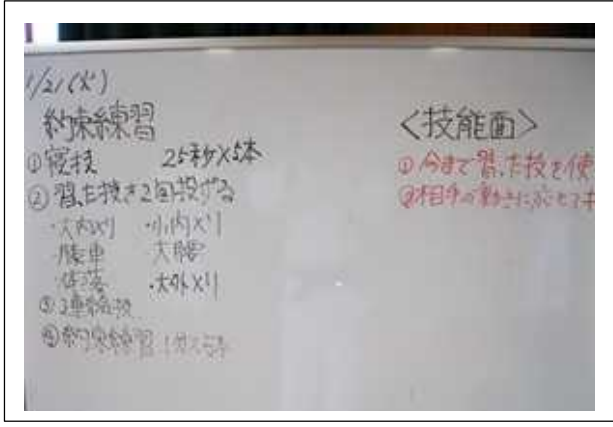 1/21(火)
約束練習
①寝技 25秒×5本
②習った技を2回投げる
・大内刈り ・小内刈り
・膝車 大腰
・体落 ・大外刈り
③2連絡技
④約束練習 1分×5本
<技能面>
①今まで習った技を使
②相手の動きに応じて